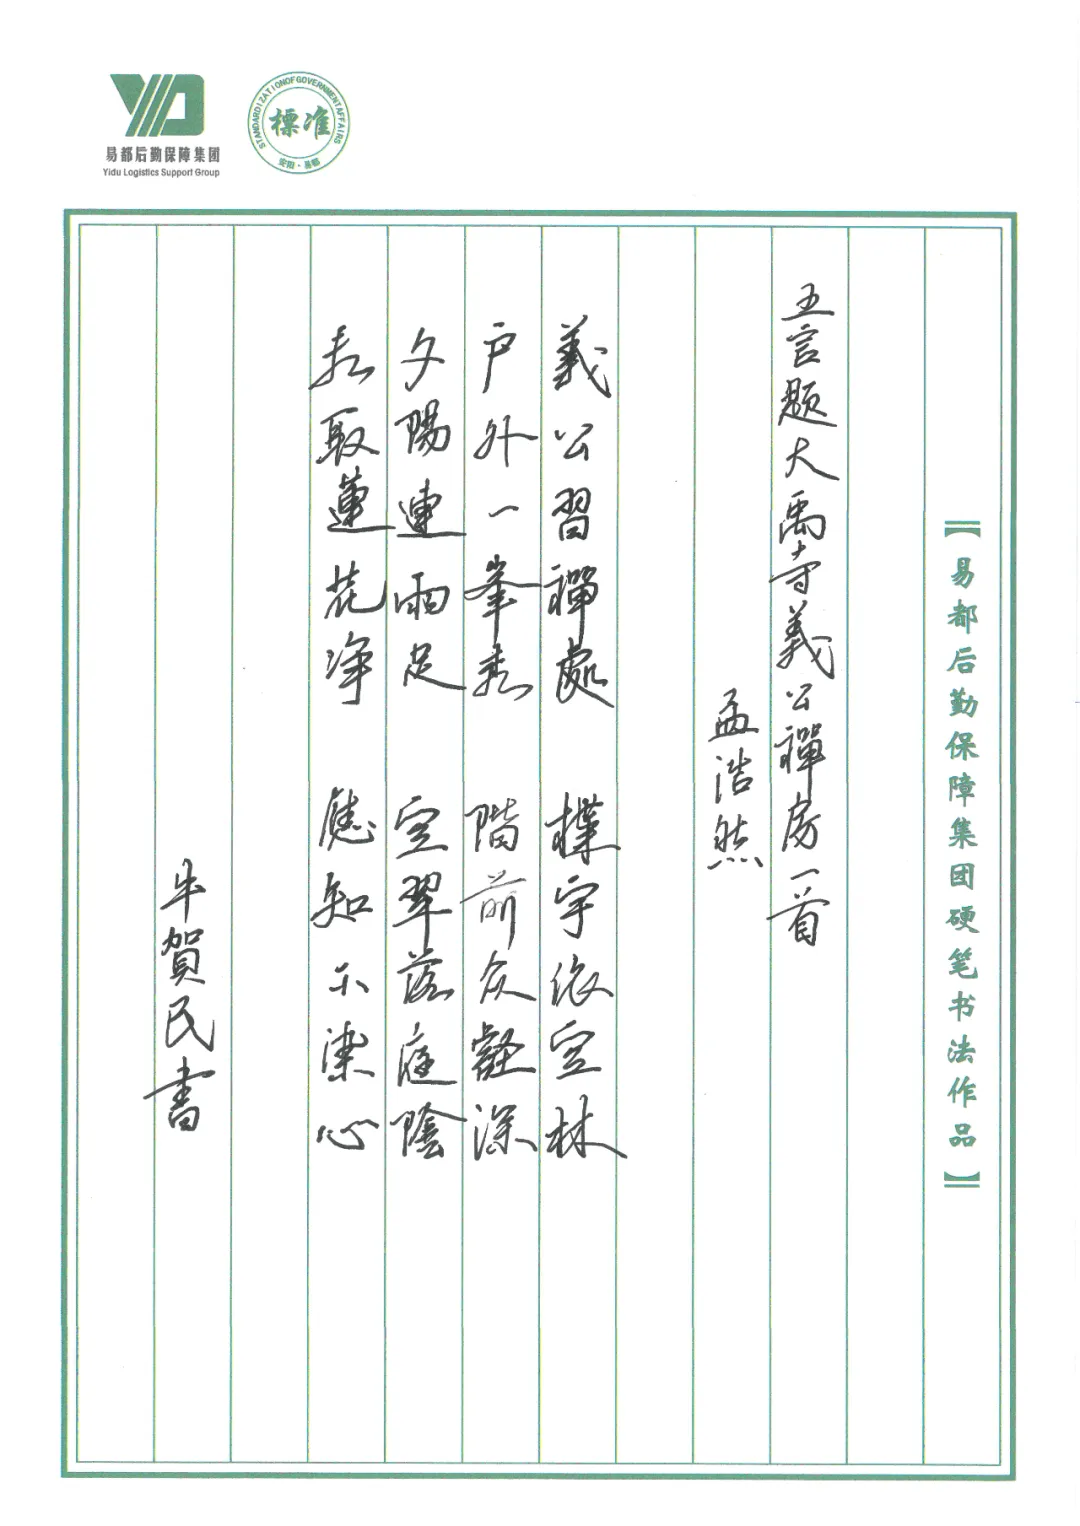 易都后勤保障集团
Yidu Logistics Support Group
STANDARDIZATIONOFGOVERNMENTAFFAIRS
標准
【易都后勤保障集团硬笔书法作品】
五言题大禹寺義公禪房一首
孟浩然
義公習禪處 構宇依空林
户外一峯秀 階前众壑深
夕陽連雨足 空翠落庭陰
看取蓮花净 應知不染心
牛賀民書